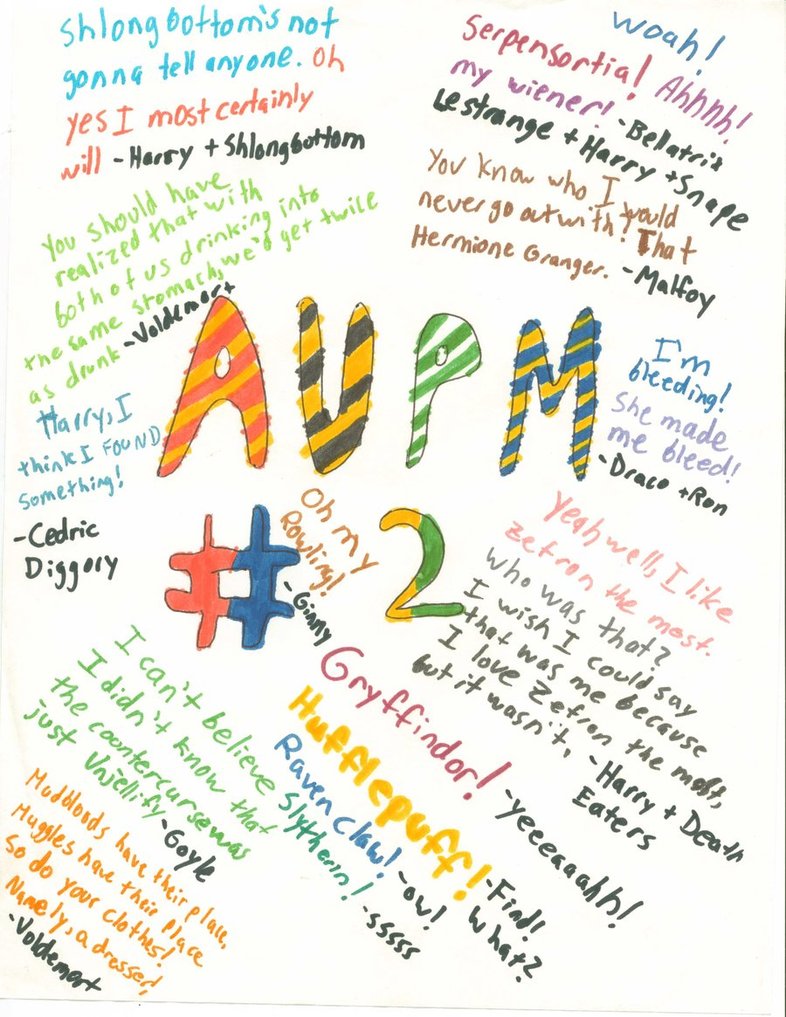 Shlongbottom's not
gonna tell anyone. Oh
yes I most certainly
will -Harry + Shlongbottom
Woah!
Serpensortia! Ahhhh!
my wiener! -Bellatrix
Lestrange + Harry + Snape
You should have
realized that with
both of us drinking into
the same stomach, we'd get twice
as drunk -Voldemort
You know who I would
never go out with? That
Hermione Granger. -Malfoy
AVPM
I'm
bleeding!
She made
me bleed!
-Draco + Ron
Harry, I
think I FOUND
something!
-Cedric
Diggory
#2
Oh my
Rowling!
-Ginny
Yeah well, I like
Zefron the most.
who was that?
I wish I could say
that was me because
I love Zefron the most,
but it wasn't, -Harry + Death
Eaters
I can't believe
I didn't know that
the countercurse was
just Unjellify -Goyle
Gryffindor! -yeeeaaahh!
Hufflepuff! -Find!
What?
Ravenclaw! -ow!
Slytherin! -sssss
Mudbloods have their place,
Muggles have their place
So do your clothes!
Namely, a dresser!
-Voldemort